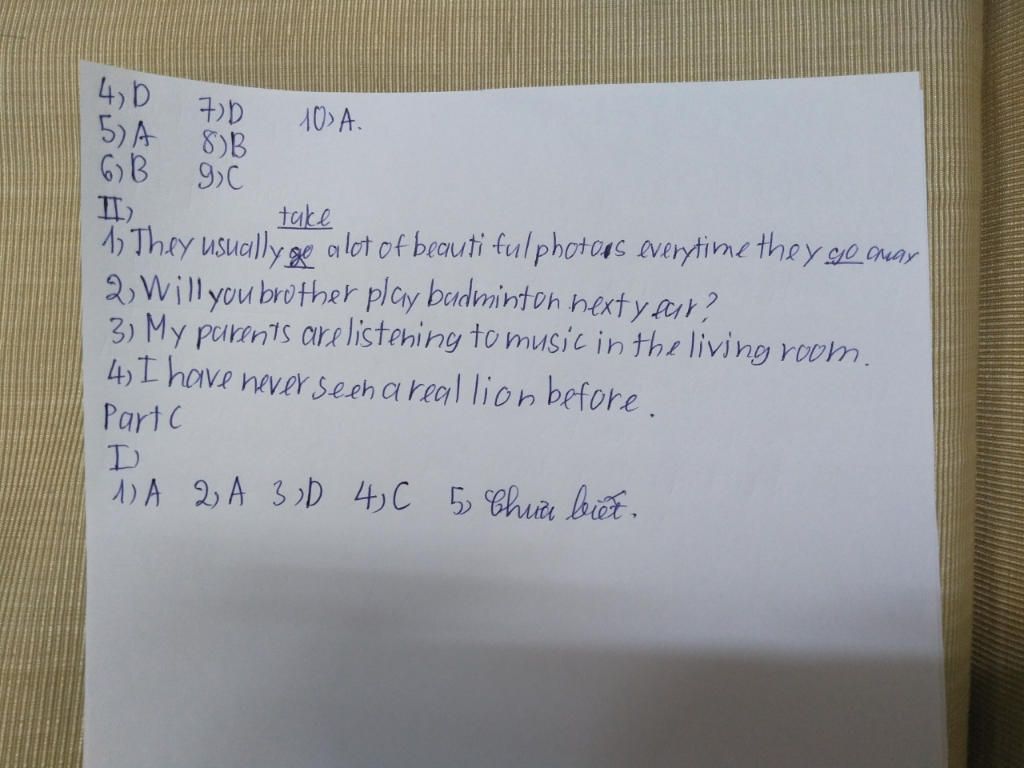 4) D 7) D 10) A.
5) A 8) B
6) B 9) C
II)
take
1) They usually go a lot of beautiful photos everytime they go away
2) Will you brother play badminton next year?
3) My parents are listening to music in the living room.
4) I have never seen a real lion before.
Part C
I)
1) A 2) A 3) D 4) C 5) Chưa biết.